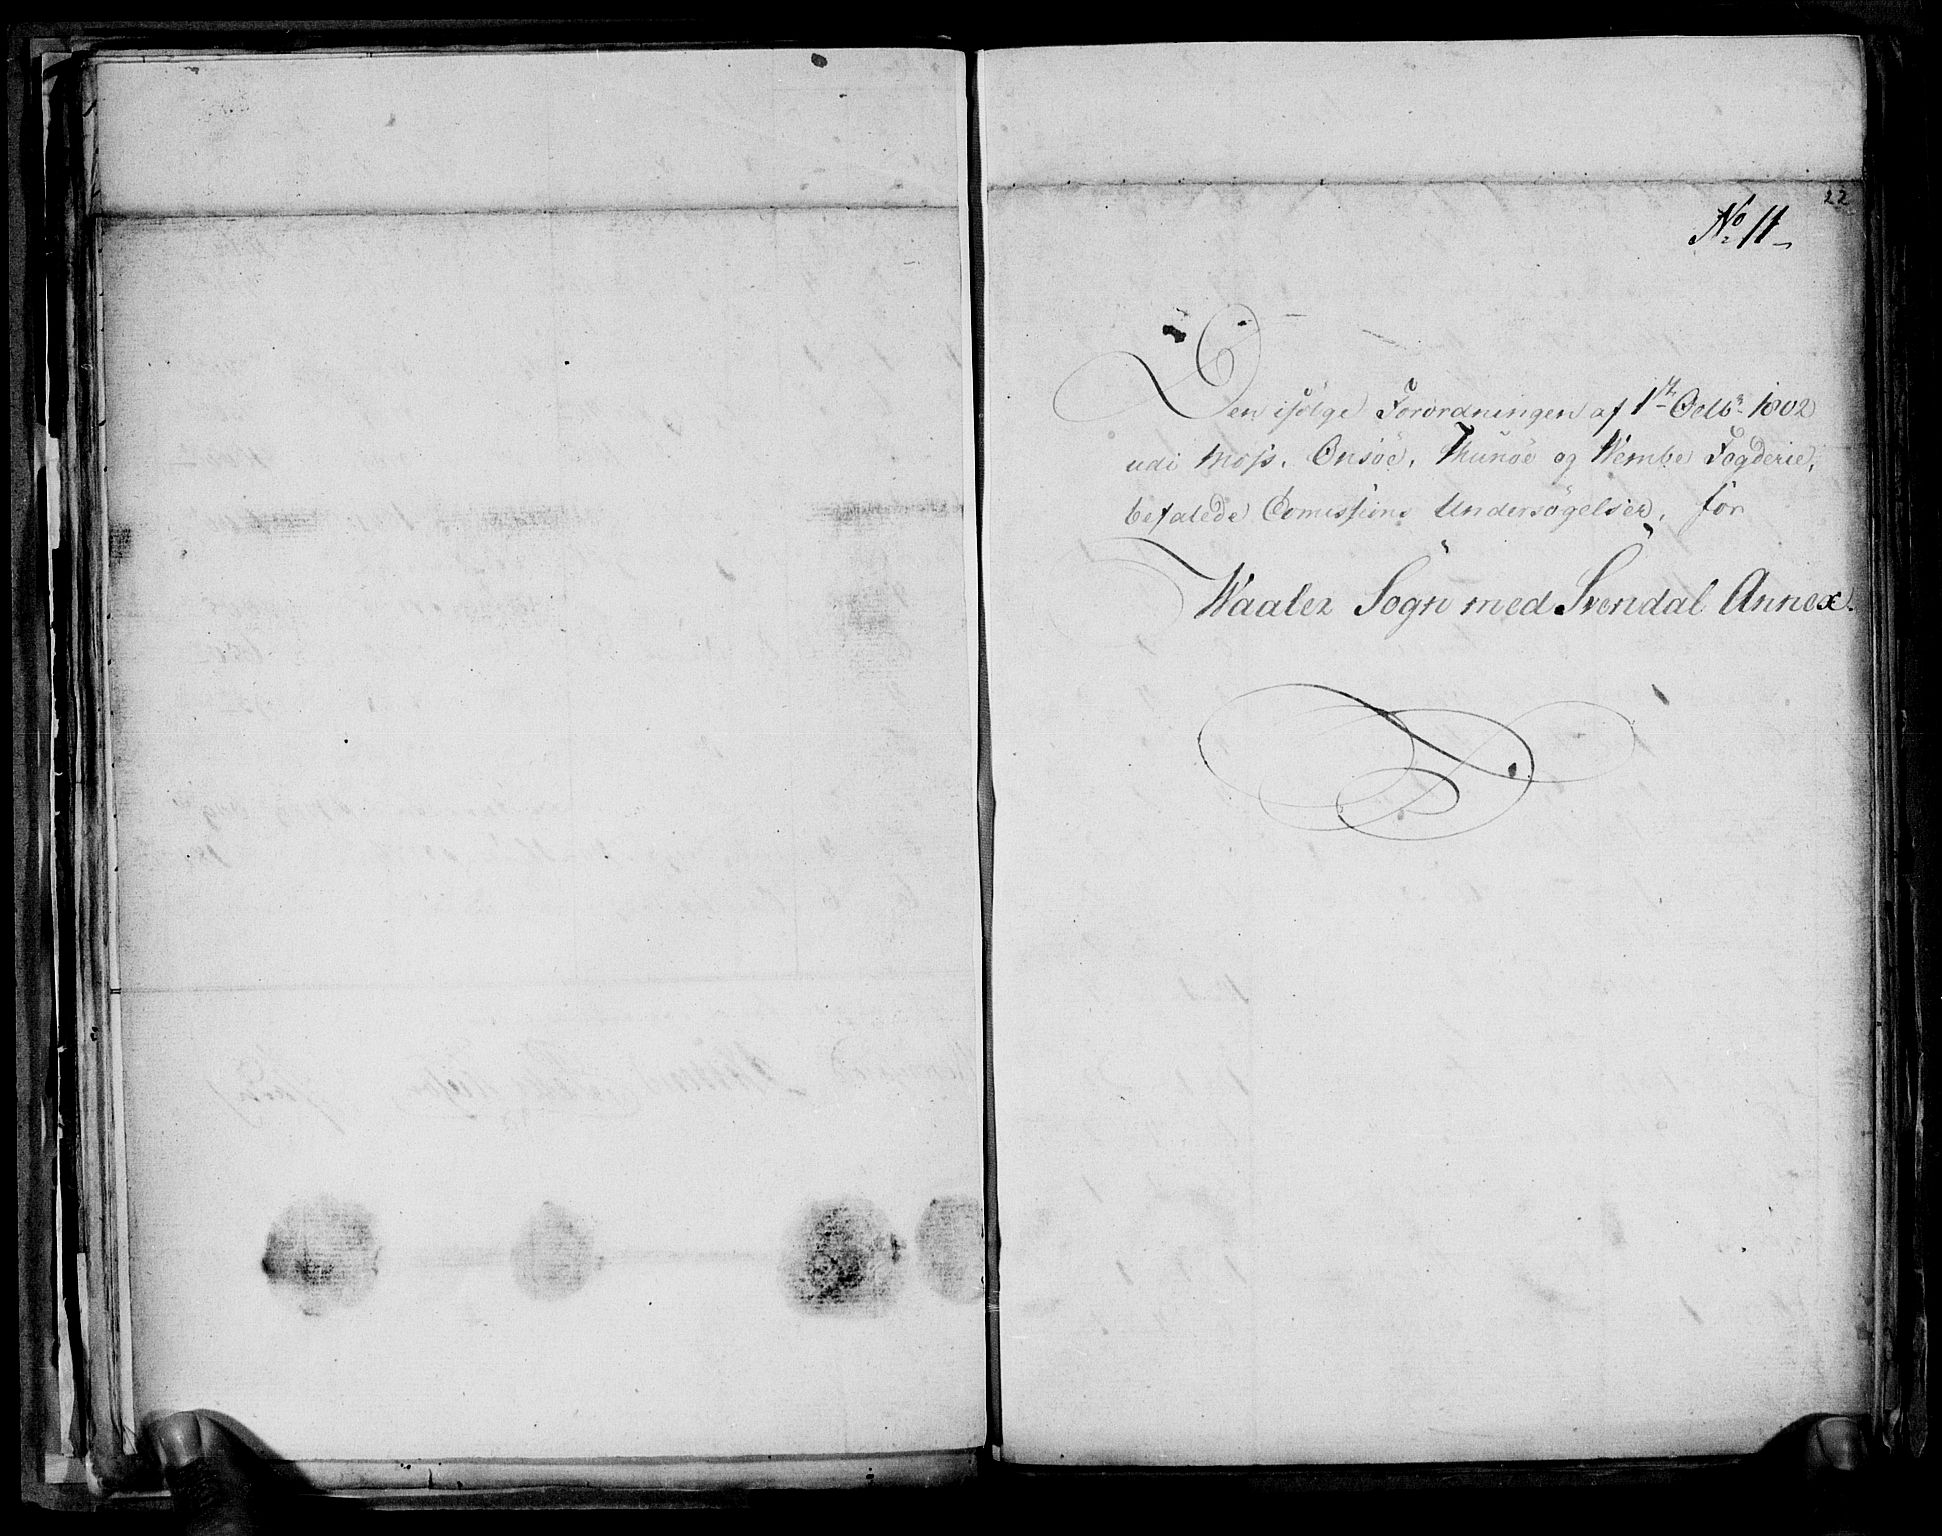 22
No 11
Den ifølge Forordningen af 1st Octbr 1802
udi Moss, Onsøe, Thunøe og Wembe Fogderie,
befalede Comissions Undersøgelse, for
Waaler Sogn med Svendal Annex.